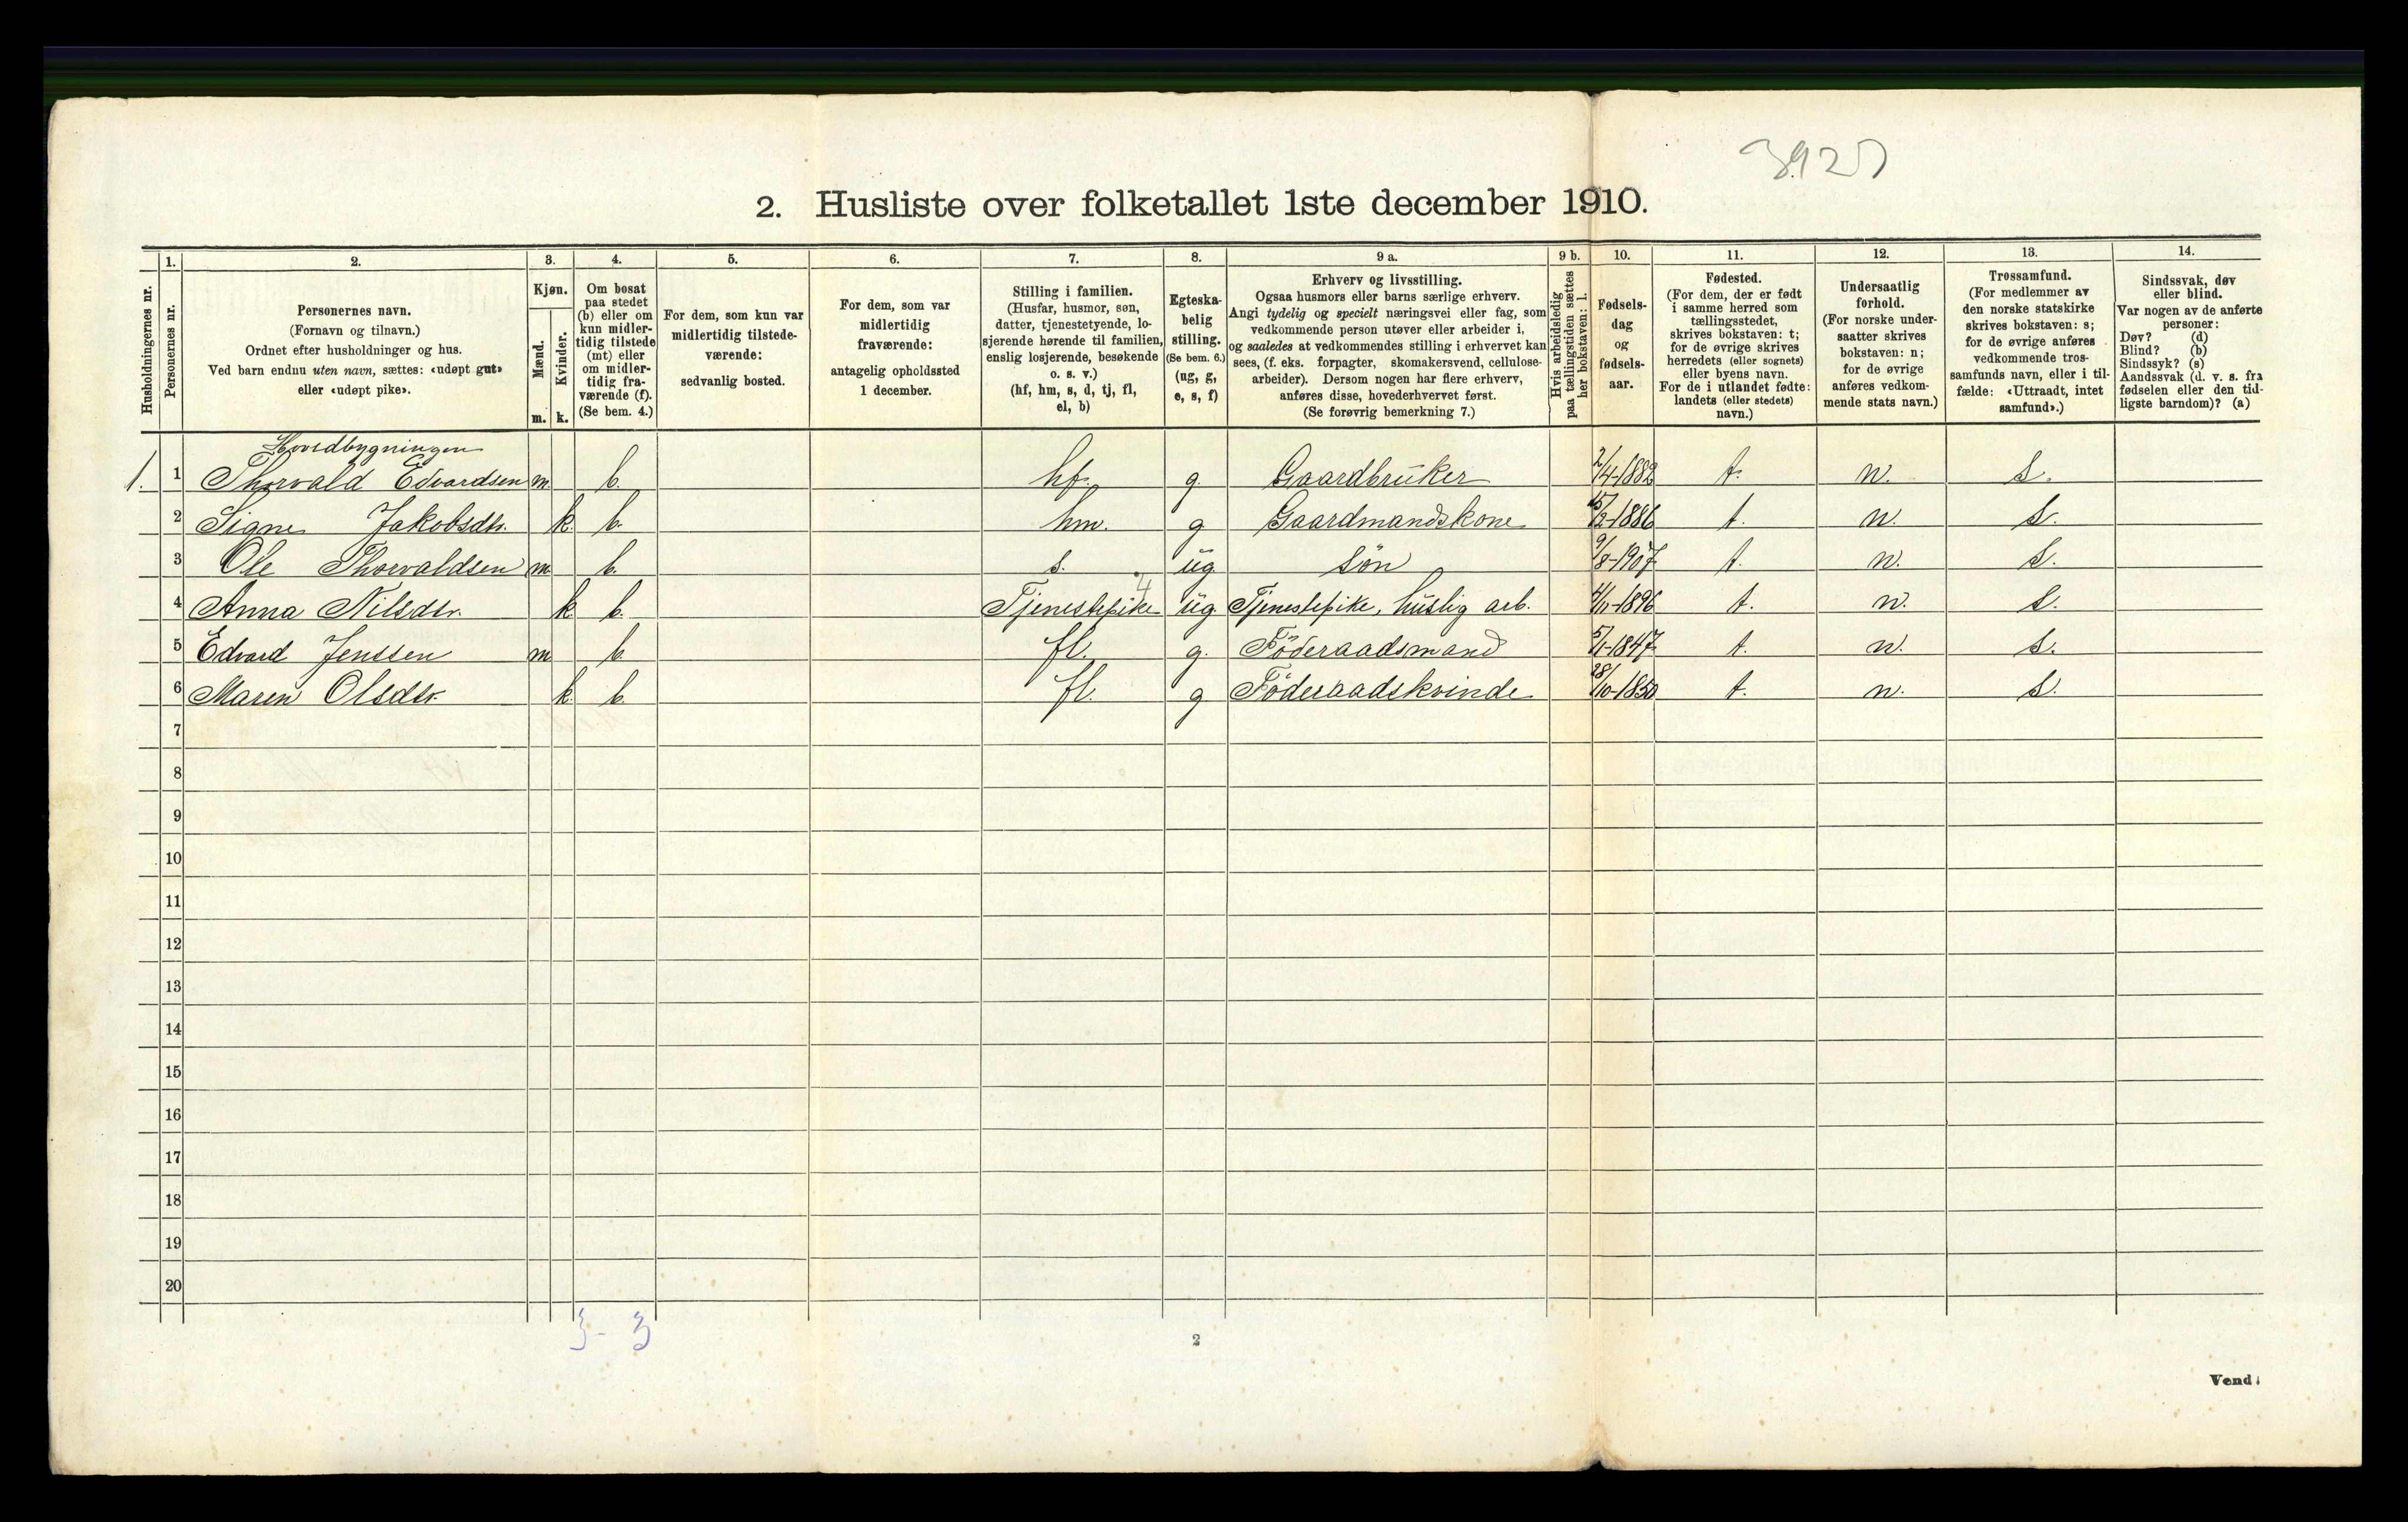 3927
2. Husliste over folketallet 1ste december 1910.
Husholdningernes nr.
1.
Personernes nr.
2.
Personernes navn.
(Fornavn og tilnavn.)
Ordnet efter husholdninger og hus.
Ved barn endnu uten navn, sættes: «udøpt gut»
eller «udøpt pike».
3.
Kjøn.
Mænd.
m.
Kvinder.
k.
4.
Om bosat
paa stedet
(b) eller om
kun midler-
tidig tilstede
(mt) eller
om midler-
tidig fra-
værende (f).
(Se bem. 4.)
5.
For dem, som kun var
midlertidig tilstede-
værende:
sedvanlig bosted.
6.
For dem, som var
midlertidig
fraværende:
antagelig opholdssted
1 december.
7.
Stilling i familien.
(Husfar, husmor, søn,
datter, tjenestetyende, lo-
sjerende hørende til familien,
enslig losjerende, besøkende
o. s. v.)
(hf, hm, s, d, tj, fl,
el, b)
8.
Egteska-
belig
stilling.
(Se bem. 6.)
(ug, g,
e, s, f)
9 a.
Erhverv og livsstilling.
Ogsaa husmors eller barns særlige erhverv.
Angi tydelig og specielt næringsvei eller fag, som
vedkommende person utøver eller arbeider i,
og saaledes at vedkommendes stilling i erhvervet kan
sees, (f. eks. forpagter, skomakersvend, cellulose-
arbeider). Dersom nogen har flere erhverv,
anføres disse, hovederhvervet først.
(Se forøvrig bemerkning 7.)
9 b.
Hvis arbeidsledig
paa tællingstiden sættes
her bokstaven: l.
10.
Fødsels-
dag
og
fødsels-
aar.
11.
Fødested.
(For dem, der er født
i samme herred som
tællingsstedet,
skrives bokstaven: t;
for de øvrige skrives
herredets (eller sognets)
eller byens navn.
For de i utlandet fødte:
landets (eller stedets)
navn.)
12.
Undersaatlig
forhold.
(For norske under-
saatter skrives
bokstaven: n;
for de øvrige
anføres vedkom-
mende stats navn.)
13.
Trossamfund.
(For medlemmer av
den norske statskirke
skrives bokstaven: s;
for de øvrige anføres
vedkommende tros-
samfunds navn, eller i til-
fælde: «Uttraadt, intet
samfund».)
14.
Sindssvak, døv
eller blind.
Var nogen av de anførte
personer:
Døv? (d)
Blind? (b)
Sindssyk? (s)
Aandssvak (d. v. s. fra
fødselen eller den tid-
ligste barndom)? (a)
Hovedbygningen
1. 1 Thorvald Edvardsen m. b. hf. g Gaardbruker 2/4-1882 t. n. s.
2 Signe Jakobsdtr. k. b. hm. g Gaardmandskone 15/2-1886 t. n. s.
3 Ole Thorvaldsen m b. s. ug søn 9/8-1907 t. n. s.
4
4 Anna Nilsdtr. k b. Tjenestepike ug Tjenestepike, huslig arb. 4/11-1896 t. n. s.
5 Edvard Jenssen m b. fl. g. Föderaadsmand 5/1-1847 t. n. s.
6 Maren Olsdtr. k. b. fl. g Föderaadskvinde 28/10-1850 t. n. s.
7
8
9
10
11
12
13
14
15
16
17
18
19
20
3 - 3
2
Vend!